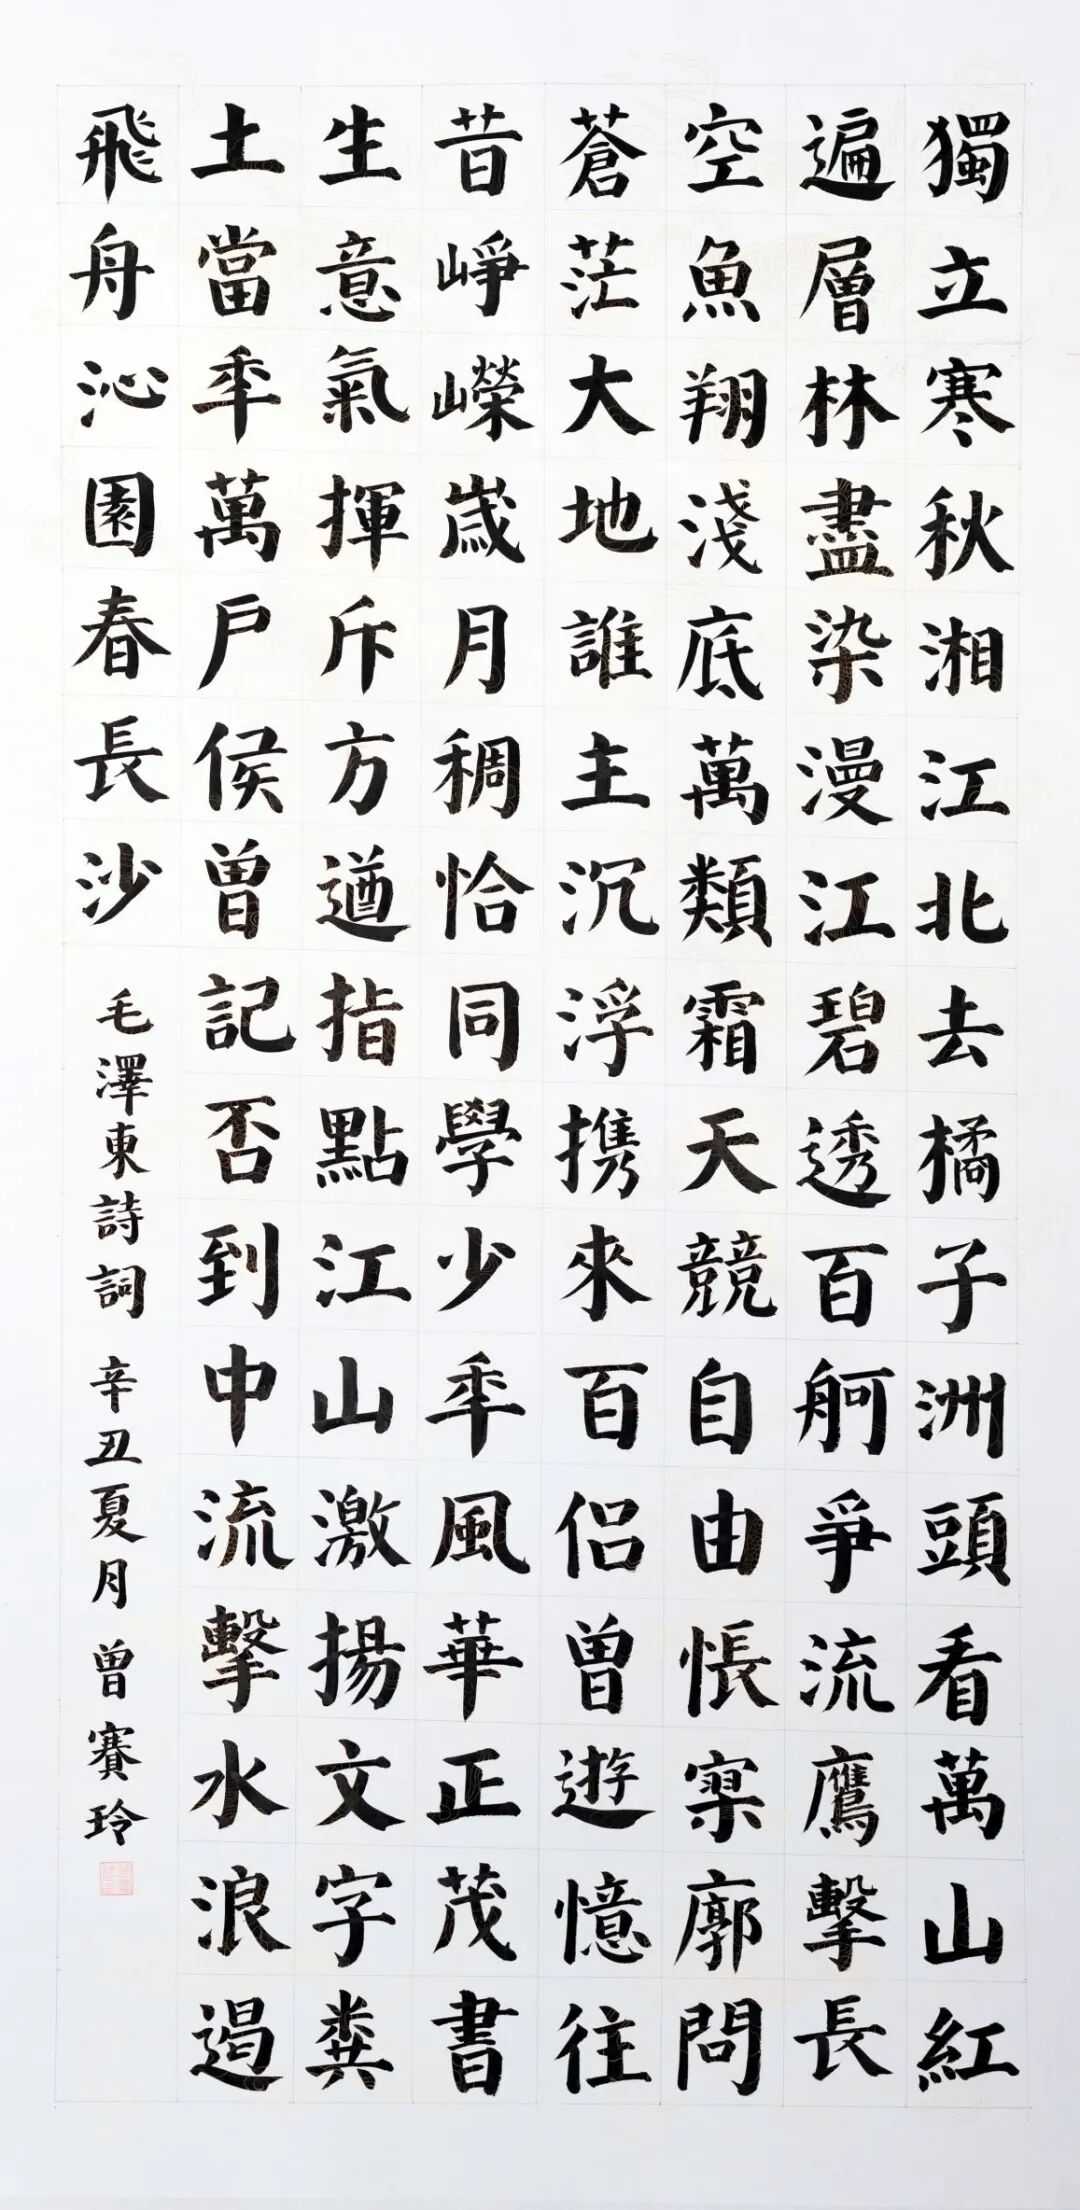 獨立寒秋湘江北去橘子洲頭看萬山紅
遍層林盡染漫江碧透百舸爭流鷹擊長
空魚翔淺底萬類霜天競自由悵寥廓問
蒼茫大地誰主沉浮携來百侣曾遊憶往
昔崢嶸歲月稠恰同學少年風華正茂書
生意氣揮斥方遒指點江山激揚文字糞
土當年萬户侯曾記否到中流擊水浪遏
飛舟沁園春長沙 毛澤東詩詞 辛丑夏月曾賽玲